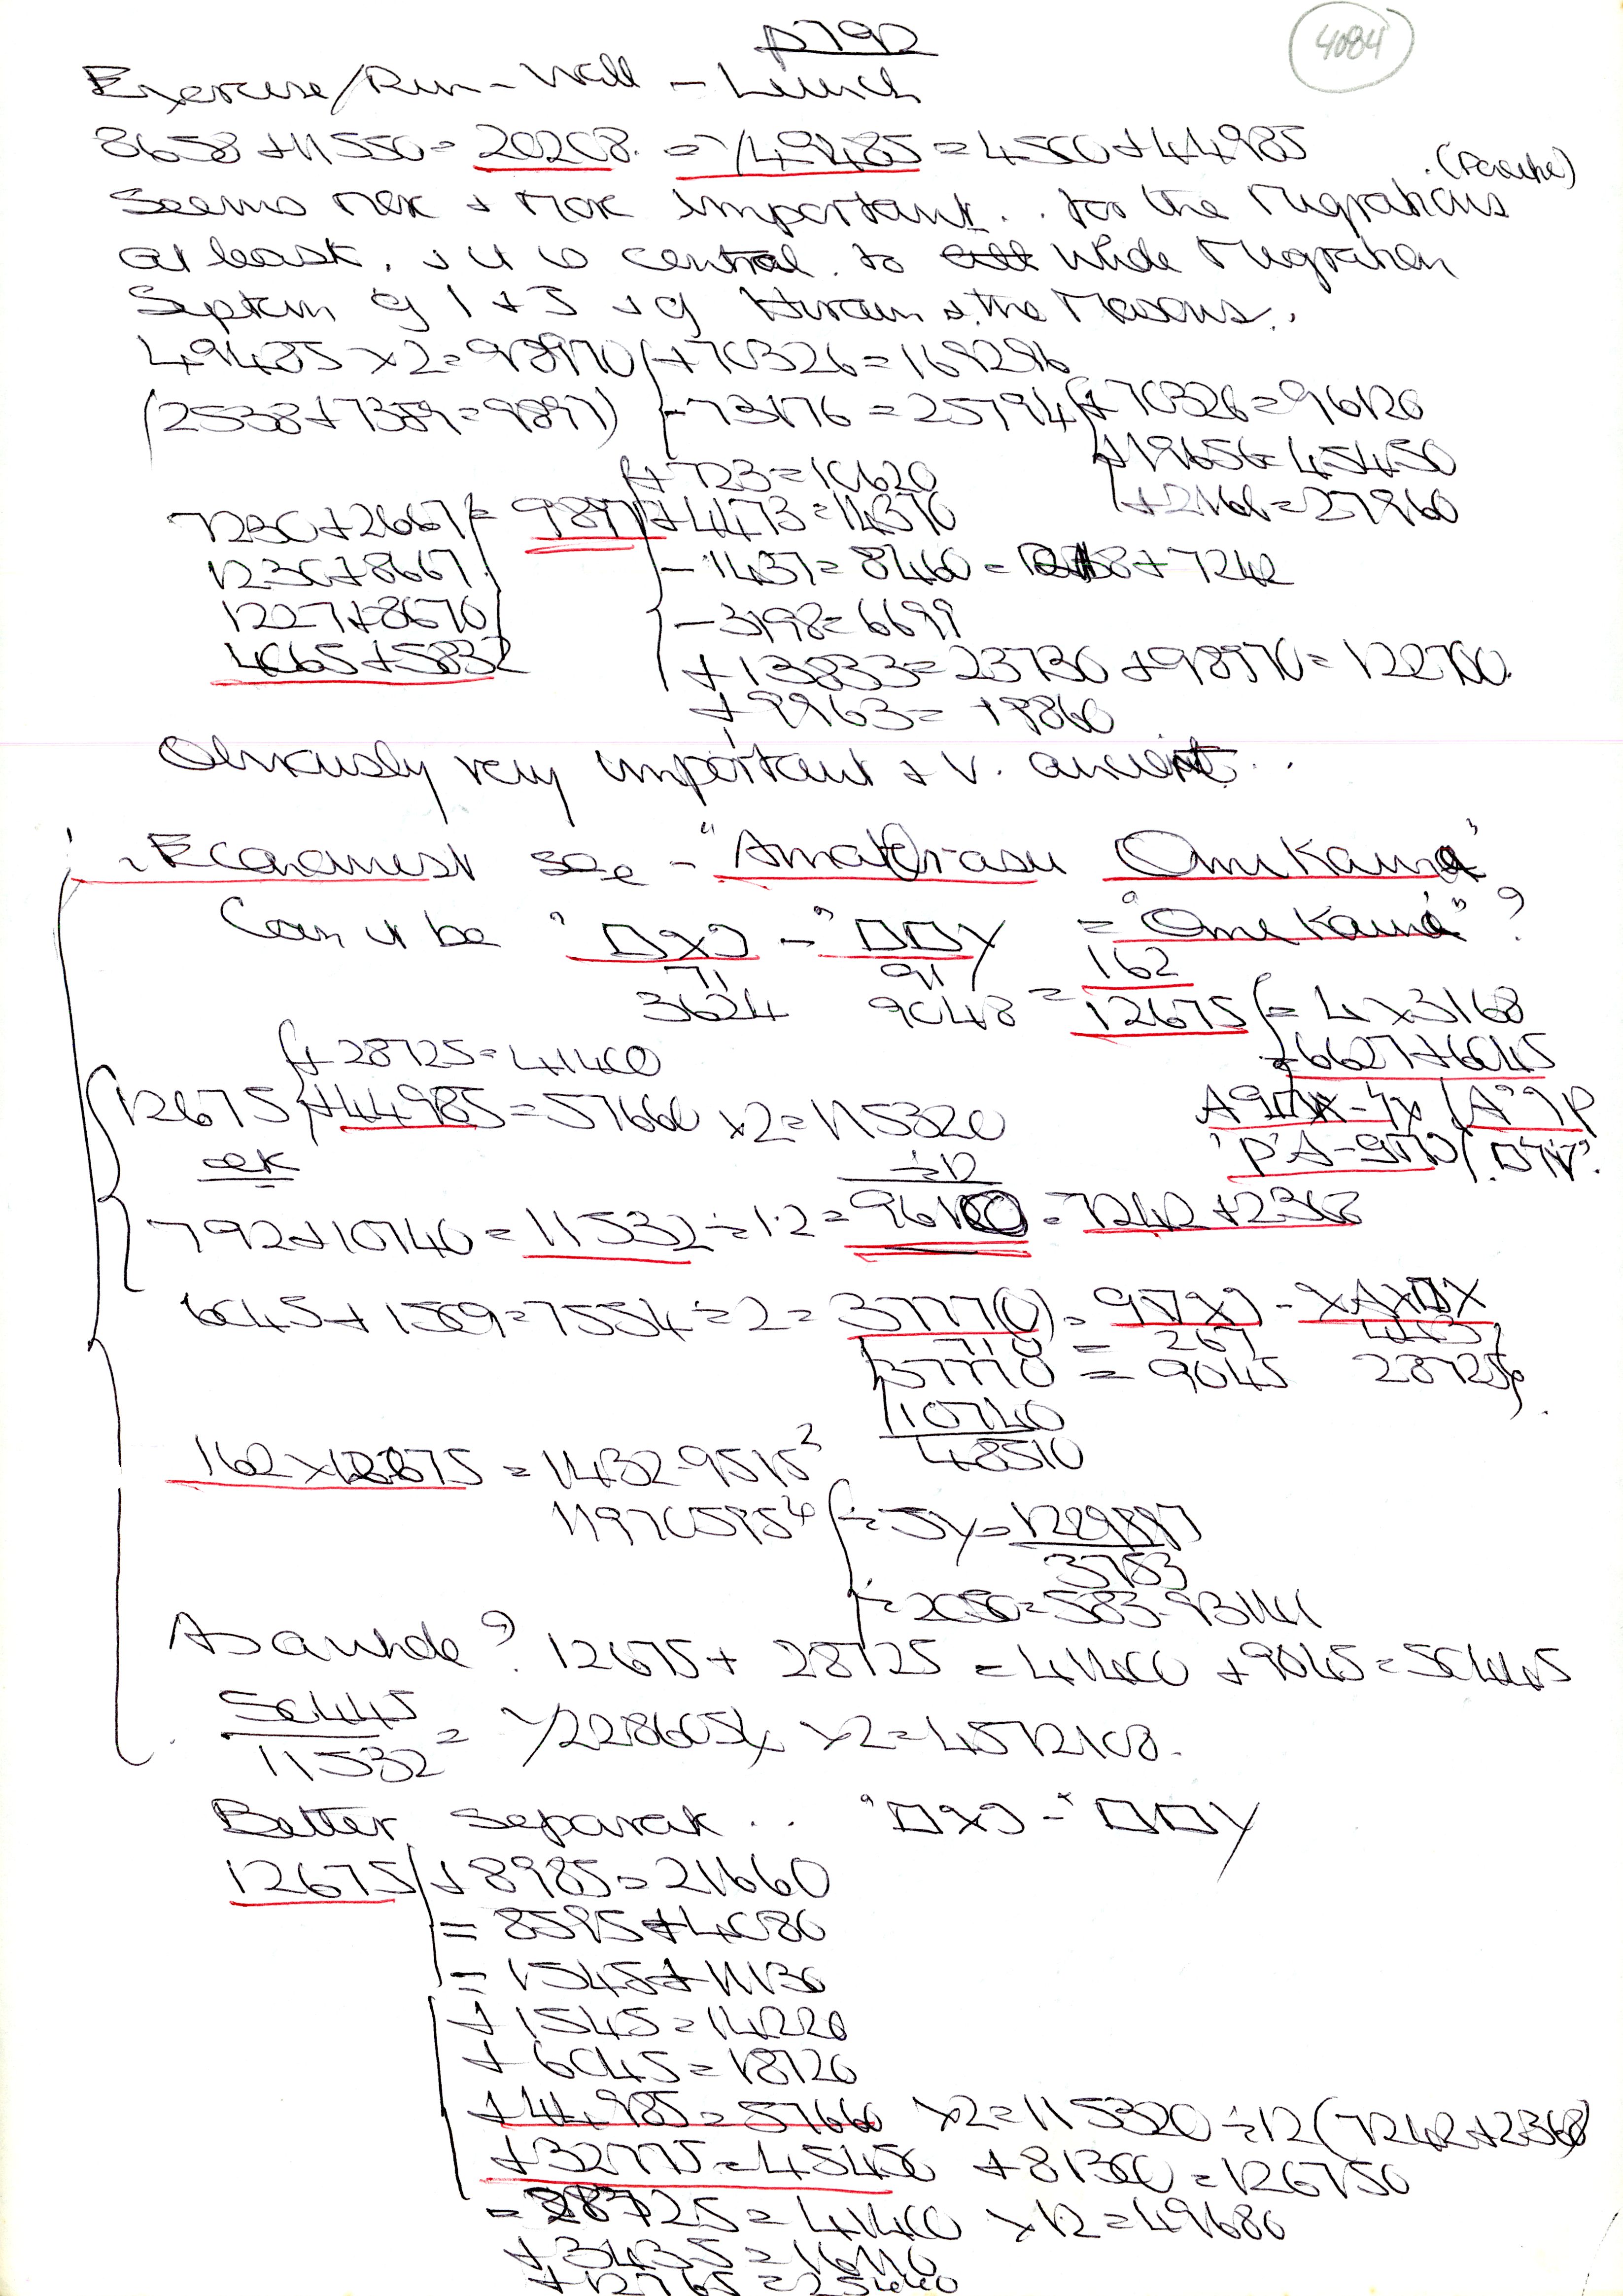 p792
4084
Exercise/Run - Wall - Lunch
8658 + 11550 = 20208. = 7/49485 = 4500 + 44985
(Porche)
Seems more + more important .. for the Migrations
at least. + it is central. to whole Migration
System of 1 + 5 + of Hiram + the Masons..
49485 x 2 = 98970 + 70326 = 169296
(2538 + 7389 = 9897) - 73176 = 25794 + 70326 = 96120
+ 19656 = 45450
+ 723 = 10620
+ 2166 = 27960
7230 + 2667 = 9897 + 4473 = 14370
1230 + 8667
- 1437 = 8460 = + 7242
1227 + 8670
- 3198 = 6699
4065 + 5832
+ 13833 = 23730 + 98970 = 122700.
+ 9963 = 19860
Obviously very important + v. ancient ..
Economist see - "Amaterasu Omikami"
Can it be = "Omikami" ?
71 91 162
3624 9048 = 12675 = 4 x 3168
+ 28725 = 41400
= 6627 + 6045
12675 + 44985 = 57660 x 2 = 115320
÷ 12
792 + 10740 = 11532 ÷ 1.2 = 9610 = 7242 + 2368
6045 + 1509 = 7554 ÷ 2 = 3777(0) =
710 = 267
37770 = 9045 28725
10740
48510
162 x 12675 = 1432.9515²
11970595⁴ ÷ 5y = 1229897
3783
÷ 2050 = 583.93141
As a whole? 12675 + 28725 = 41400 + 9045 = 50445
50445
11532 = 7/2286054 x 2 = 4572108.
Better separate ..
12675 + 8985 = 21660
= 8595 + 4080
= 1545 + 11130
+ 1545 = 14220
+ 6045 = 18720
+ 44985 = 57660 x 2 = 115320 ÷ 12 (7242 + 2368)
+ 32775 = 45450 + 81300 = 126750
= 28725 = 41400 x 12 = 49680
+ 3435 = 16110
+ 12765 = 25440